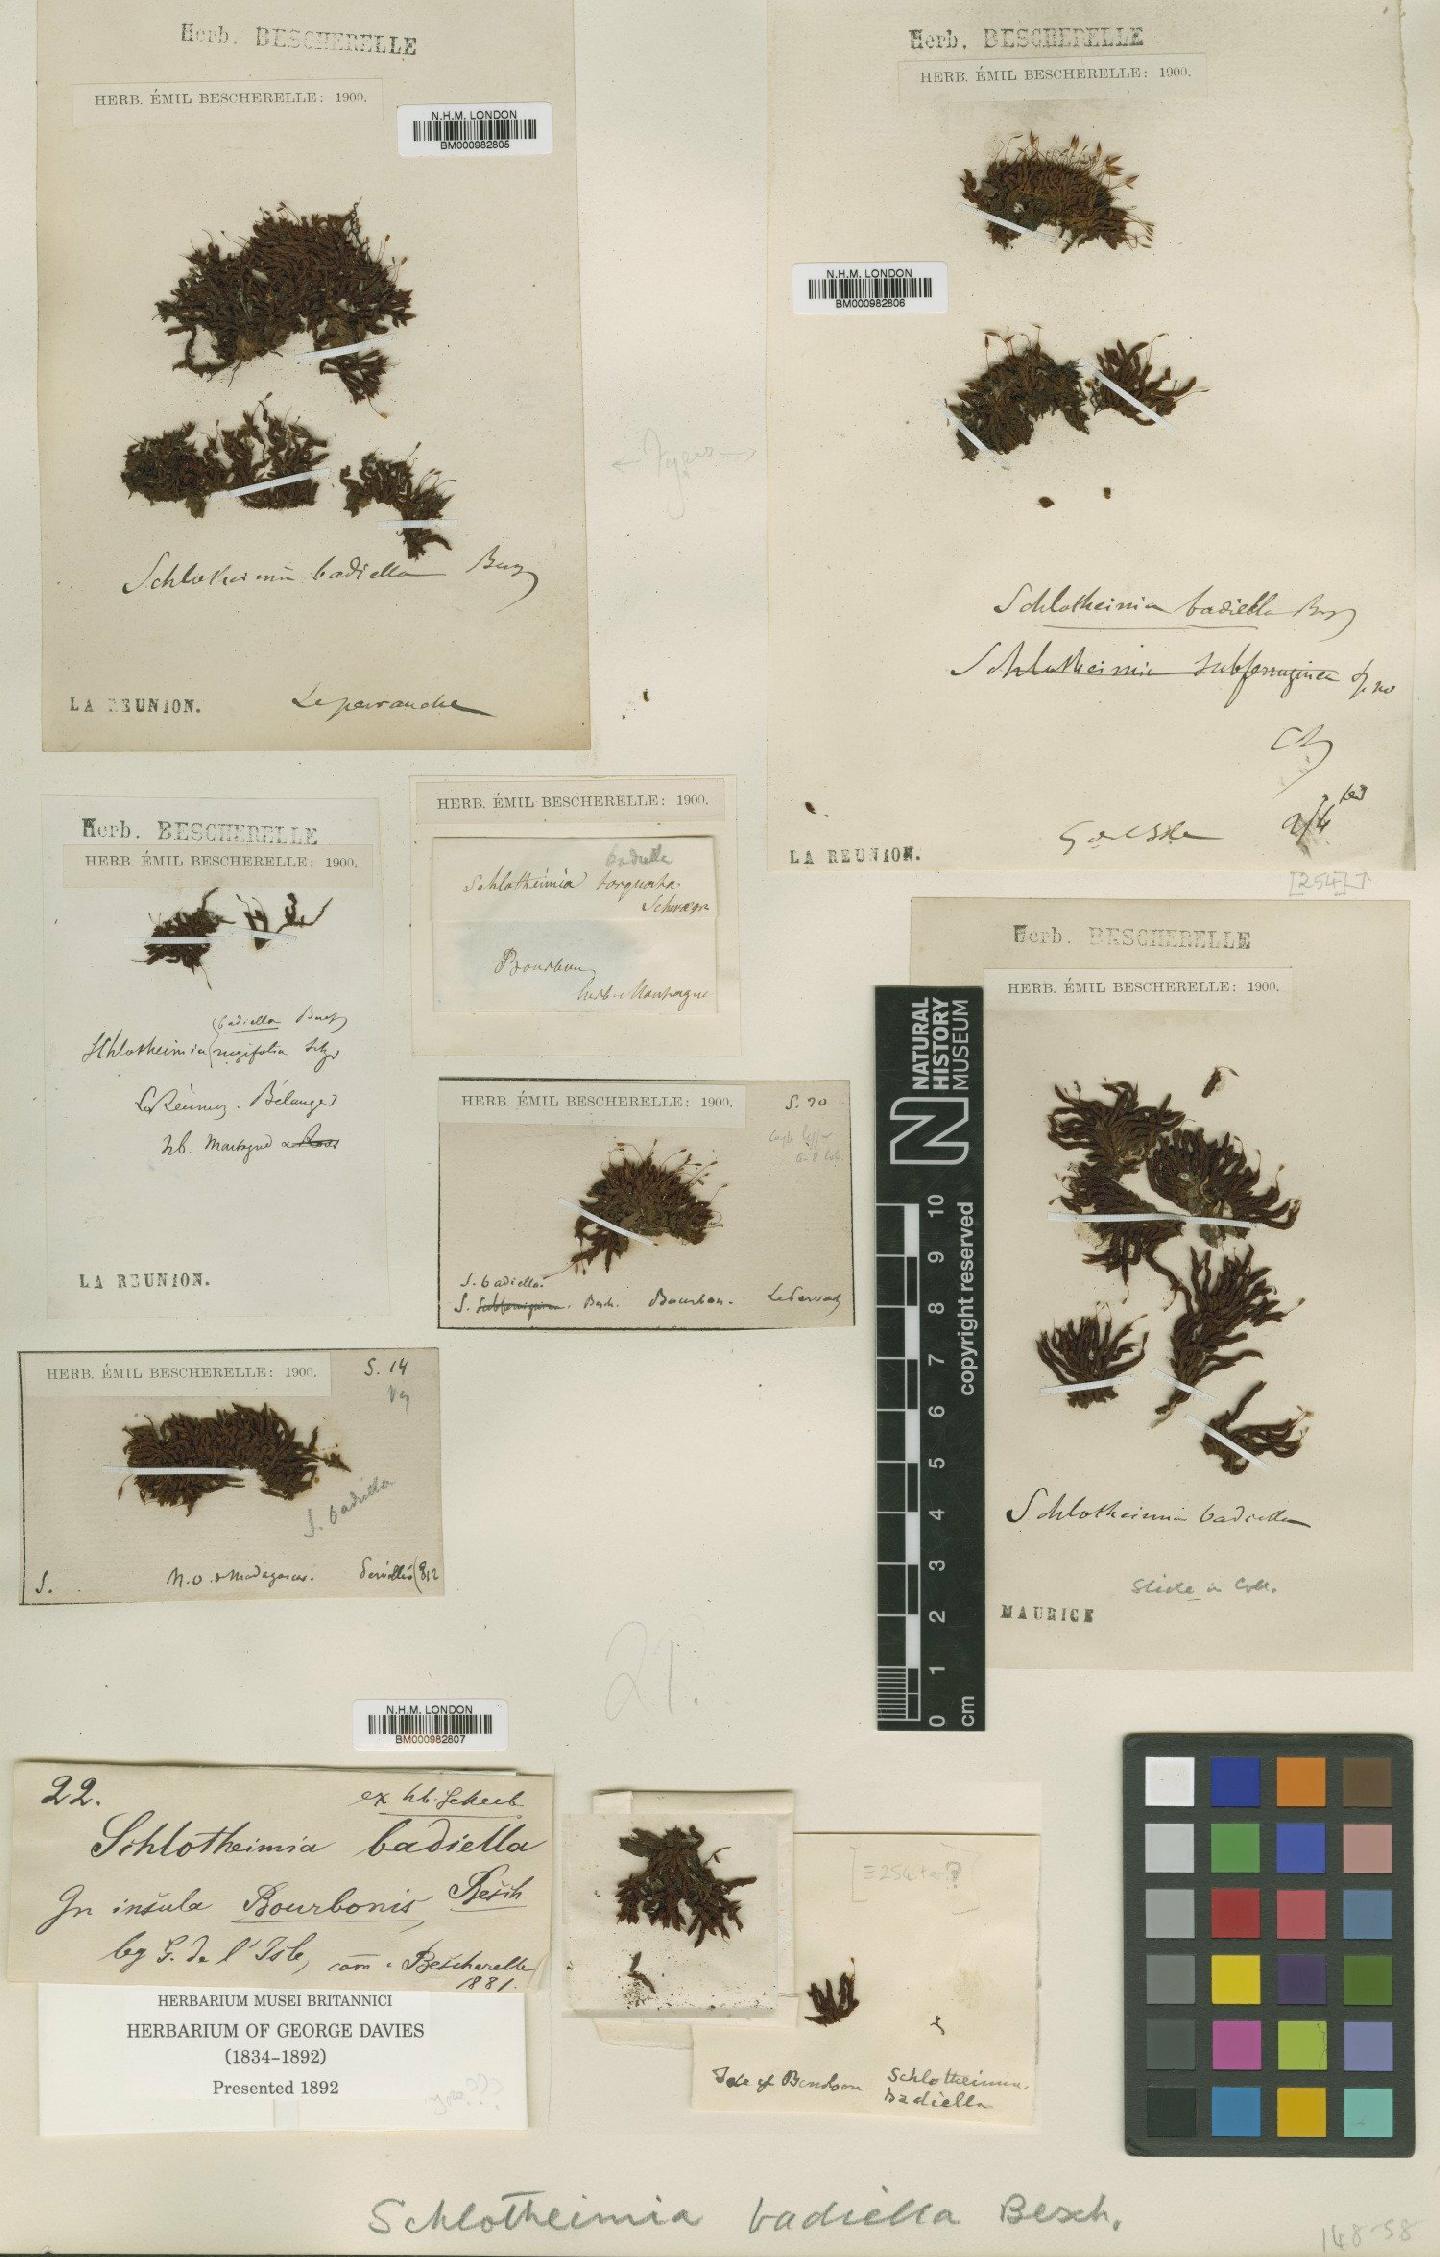 Herb. BESCHERELLE
HERB. ÉMIL BESCHERELLE: 1900.
N.H.M. LONDON
BM000982805
Schlotheimia badiella
LA REUNION.
Herb. BESCHERELLE
HERB. ÉMIL BESCHERELLE: 1900.
N.H.M. LONDON
BM000982806
← Types →
Schlotheimia badiella
Schlotheimia subferruginea sp. no
G de l'Isle
LA REUNION.
[254]
Herb. BESCHERELLE
HERB. ÉMIL BESCHERELLE: 1900.
badiella
Schlotheimia rugifolia
La Réunion. Bélanger
hb. Montagne
LA REUNION.
HERB. ÉMIL BESCHERELLE: 1900.
badiella
Schlotheimia torquata
Schwægr
Bourbon
herb. Montagne
HERB. ÉMIL BESCHERELLE: 1900.
S. 20
S. badiella.
S. subferruginea. Besch. Bourbon.
HERB. ÉMIL BESCHERELLE: 1900.
S. 14
S. badiella
S. N.O. Madagascar.
Herb. BESCHERELLE
HERB. ÉMIL BESCHERELLE: 1900.
Schlotheimia badiella
Slide in Coll.
MAURICE
NATURAL
HISTORY
MUSEUM
copyright reserved
0 1 2 3 4 5 6 7 8 9 10
cm
21.
N.H.M. LONDON
BM000982807
22.
ex hb. Geheeb
Schlotheimia badiella
In insula Bourbonis, Besch
leg G. de l'Isle, com. Bescherelle
1881.
HERBARIUM MUSEI BRITANNICI
HERBARIUM OF GEORGE DAVIES
(1834–1892)
Presented 1892
Isle of Bourbon
Schlotheimia
badiella
Schlotheimia badiella Besch.
148-58